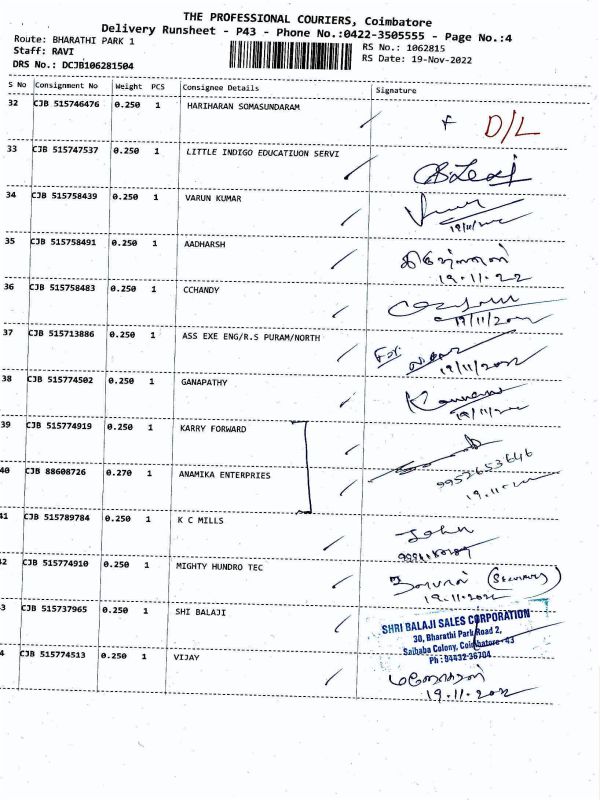 THE PROFESSIONAL COURIERS, Coimbatore
Delivery Runsheet - P43 - Phone No.:0422-3505555 - Page No.:4
Route: BHARATHI PARK 1 RS No.: 1062815
Staff: RAVI RS Date: 19-Nov-2022
DRS No.: DCJB106281504
S No Consignment No Weight PCS Consignee Details Signature
32 CJB 515746476 0.250 1 HARIHARAN SOMASUNDARAM D/L
33 CJB 515747537 0.250 1 LITTLE INDIGO EDUCATIUON SERVI
34 CJB 515758439 0.250 1 VARUN KUMAR
35 CJB 515758491 0.250 1 AADHARSH
19.11.22
36 CJB 515758483 0.250 1 CCHANDY
19/11/2022
37 CJB 515713886 0.250 1 ASS EXE ENG/R.S PURAM/NORTH For
19/11/2022
38 CJB 515774502 0.250 1 GANAPATHY
39 CJB 515774919 0.250 1 KARRY FORWARD
40 CJB 88608726 0.270 1 ANAMIKA ENTERPRIES
9952653646
41 CJB 515789784 0.250 1 K C MILLS John
2 CJB 515774910 0.250 1 MIGHTY HUNDRO TEC
19.11.2022
3 CJB 515737965 0.250 1 SHI BALAJI
SHRI BALAJI SALES CORPORATION
30, Bharathi Park Road 2,
Saibaba Colony, Coimbatore - 43
Ph : 94432-36704
4 CJB 515774513 0.250 1 VIJAY
19.11.2022